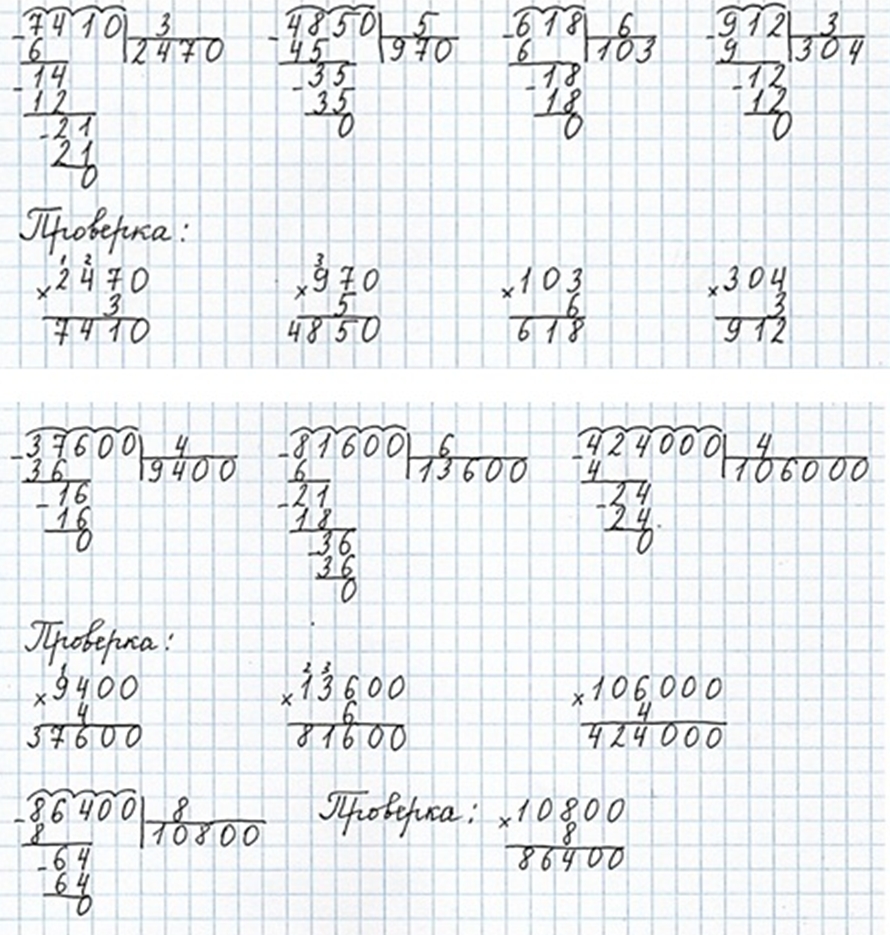 -7410 3 -4850 5 -618 6 -912 3
6 2470 45 970 6 103 9 304
-14 -35 -18 -12
12 35 18 12
-21 0 0 0
21
0
Проверка:
1 2 3
×2470 ×970 ×103 ×304
3 5 6 3
7410 4850 618 912
-37600 4 -81600 6 -424000 4
36 9400 6 13600 4 106000
-16 -21 -24
16 18 24
0 -36 0
36
0
Проверка:
1 2 3
×9400 ×13600 ×106000
4 6 4
37600 81600 424000
-86400 8 Проверка: ×10800
8 10800 8
-64 86400
64
0